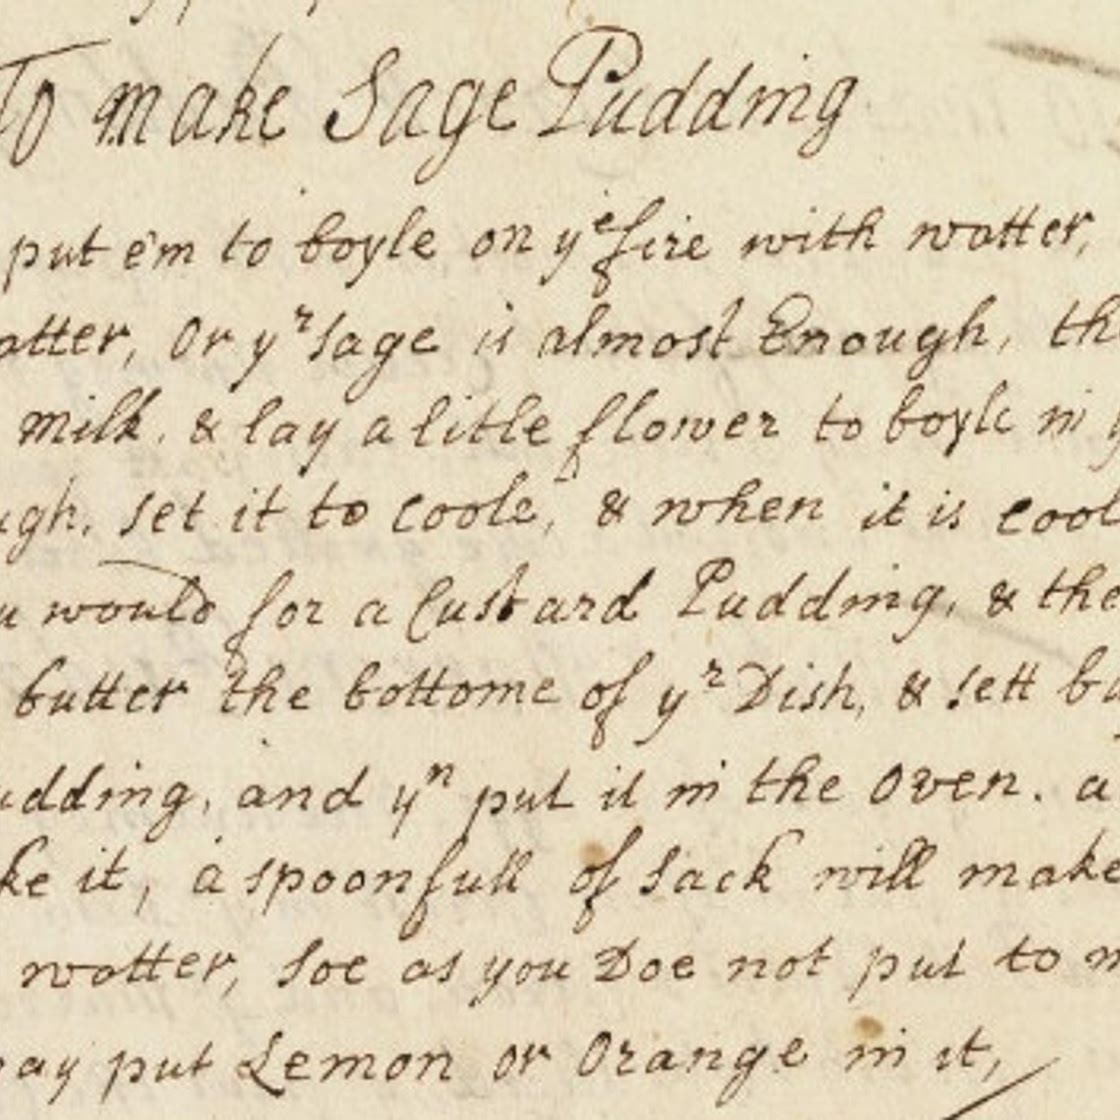 To make Sage Pudding
put em to boyle on yᵉ fire with watter,
atter, Or yʳ sage is almost Enough, th
milk. & lay a litle flower to boyle in y
ugh. set it to coole, & when it is cool
u would for a Custard Pudding, & the
butter the bottome of yʳ Dish, & sett b
udding, and yⁿ put it in the oven. a
ke it, a spoonfull of sack will make
watter, soe as you Doe not put to m
ay put Lemon or Orange in it,